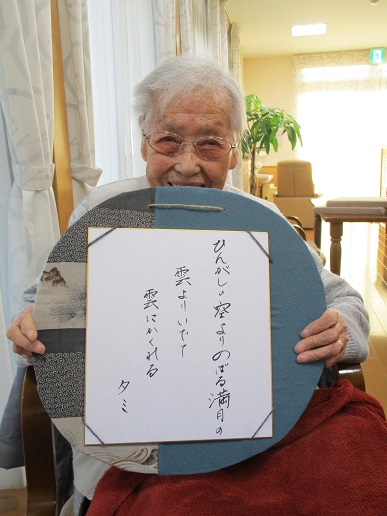 ひんがしの空よりのぼる満月の
雲よりいでて
雲にかくれる
タミ